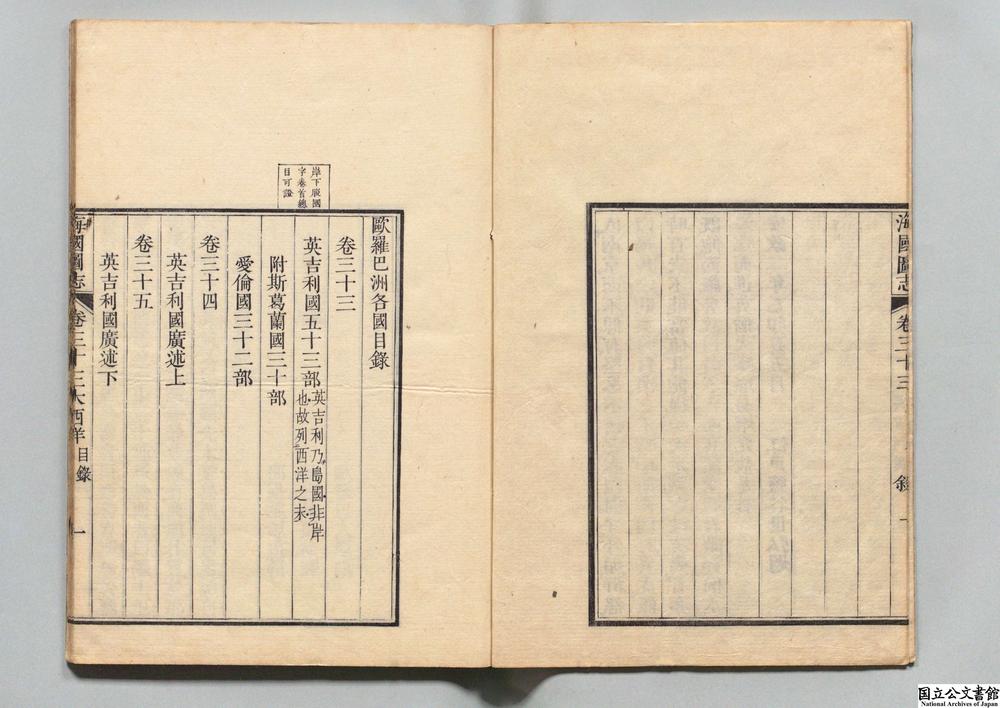 海國圖志
卷三十三
歐羅巴洲各國目錄
卷三十三
英吉利國五十三部英吉利乃島國非岸
也故列西洋之末
附斯葛蘭國三十部
愛倫國三十二部
卷三十四
英吉利國廣述上
卷三十五
英吉利國廣述下
岸下脱國
字卷首總
目可證
海國圖志
卷三十三大西洋目錄
一
国立公文書館
National Archives of Japan